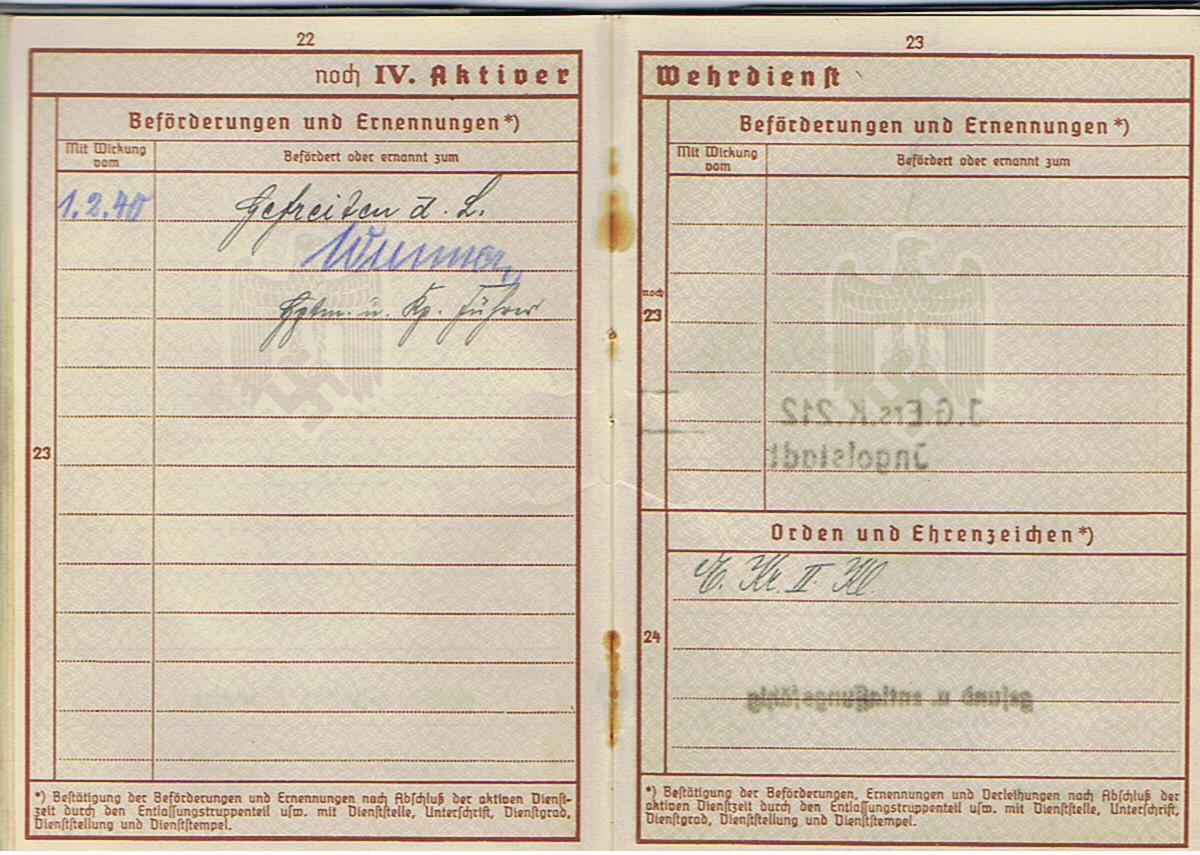 22
noch IV. Aktiver
Beförderungen und Ernennungen*)
Mit Wirkung
vom
Befördert oder ernannt zum
1.2.40
Gefreiten d. L.
Hptm. u. Kp. Führer
23
*) Bestätigung der Beförderungen und Ernennungen nach Abschluß der aktiven Dienst-
zeit durch den Entlassungstruppenteil usw. mit Dienststelle, Unterschrift, Dienstgrad,
Dienststellung und Dienststempel.
23
Wehrdienst
Beförderungen und Ernennungen*)
Mit Wirkung
vom
Befördert oder ernannt zum
noch
23
J.G.Ers.K.212
Ingolstadt
Orden und Ehrenzeichen*)
E. Kr. II Kl
24
gesund u. entlaßungsfähig
*) Bestätigung der Beförderungen, Ernennungen und Verleihungen nach Abschluß der
aktiven Dienstzeit durch den Entlassungstruppenteil usw. mit Dienststelle, Unterschrift,
Dienstgrad, Dienststellung und Dienststempel.